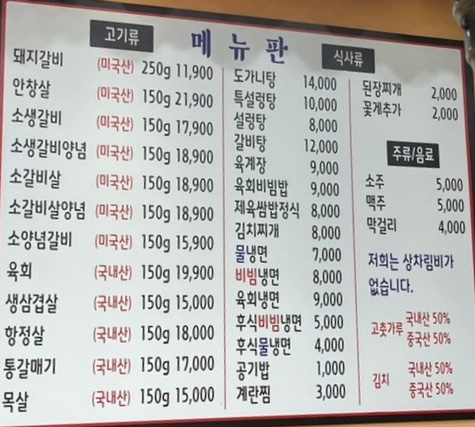 메뉴판
고기류
돼지갈비 (미국산) 250g 11,900
안창살 (미국산) 150g 21,900
소생갈비 (미국산) 150g 17,900
소생갈비양념 (미국산) 150g 18,900
소갈비살 (미국산) 150g 18,900
소갈비살양념 (미국산) 150g 18,900
소양념갈비 (미국산) 150g 15,900
육회 (국내산) 150g 19,900
생삼겹살 (국내산) 150g 15,000
항정살 (국내산) 150g 18,000
통갈매기 (국내산) 150g 17,000
목살 (국내산) 150g 15,000
식사류
도가니탕 14,000
특설렁탕 10,000
설렁탕 8,000
갈비탕 12,000
육계장 9,000
육회비빔밥 9,000
제육쌈밥정식 8,000
김치찌개 8,000
물냉면 7,000
비빔냉면 8,000
육회냉면 9,000
후식비빔냉면 5,000
후식물냉면 4,000
공기밥 1,000
계란찜 3,000
된장찌개 2,000
꽃게추가 2,000
주류/음료
소주 5,000
맥주 5,000
막걸리 4,000
저희는 상차림비가
없습니다.
고춧가루 국내산 50%
중국산 50%
김치 국내산 50%
중국산 50%